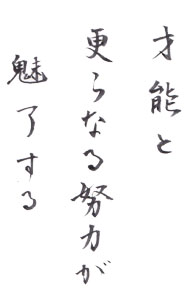 才能と
更らなる努力が
魅了する